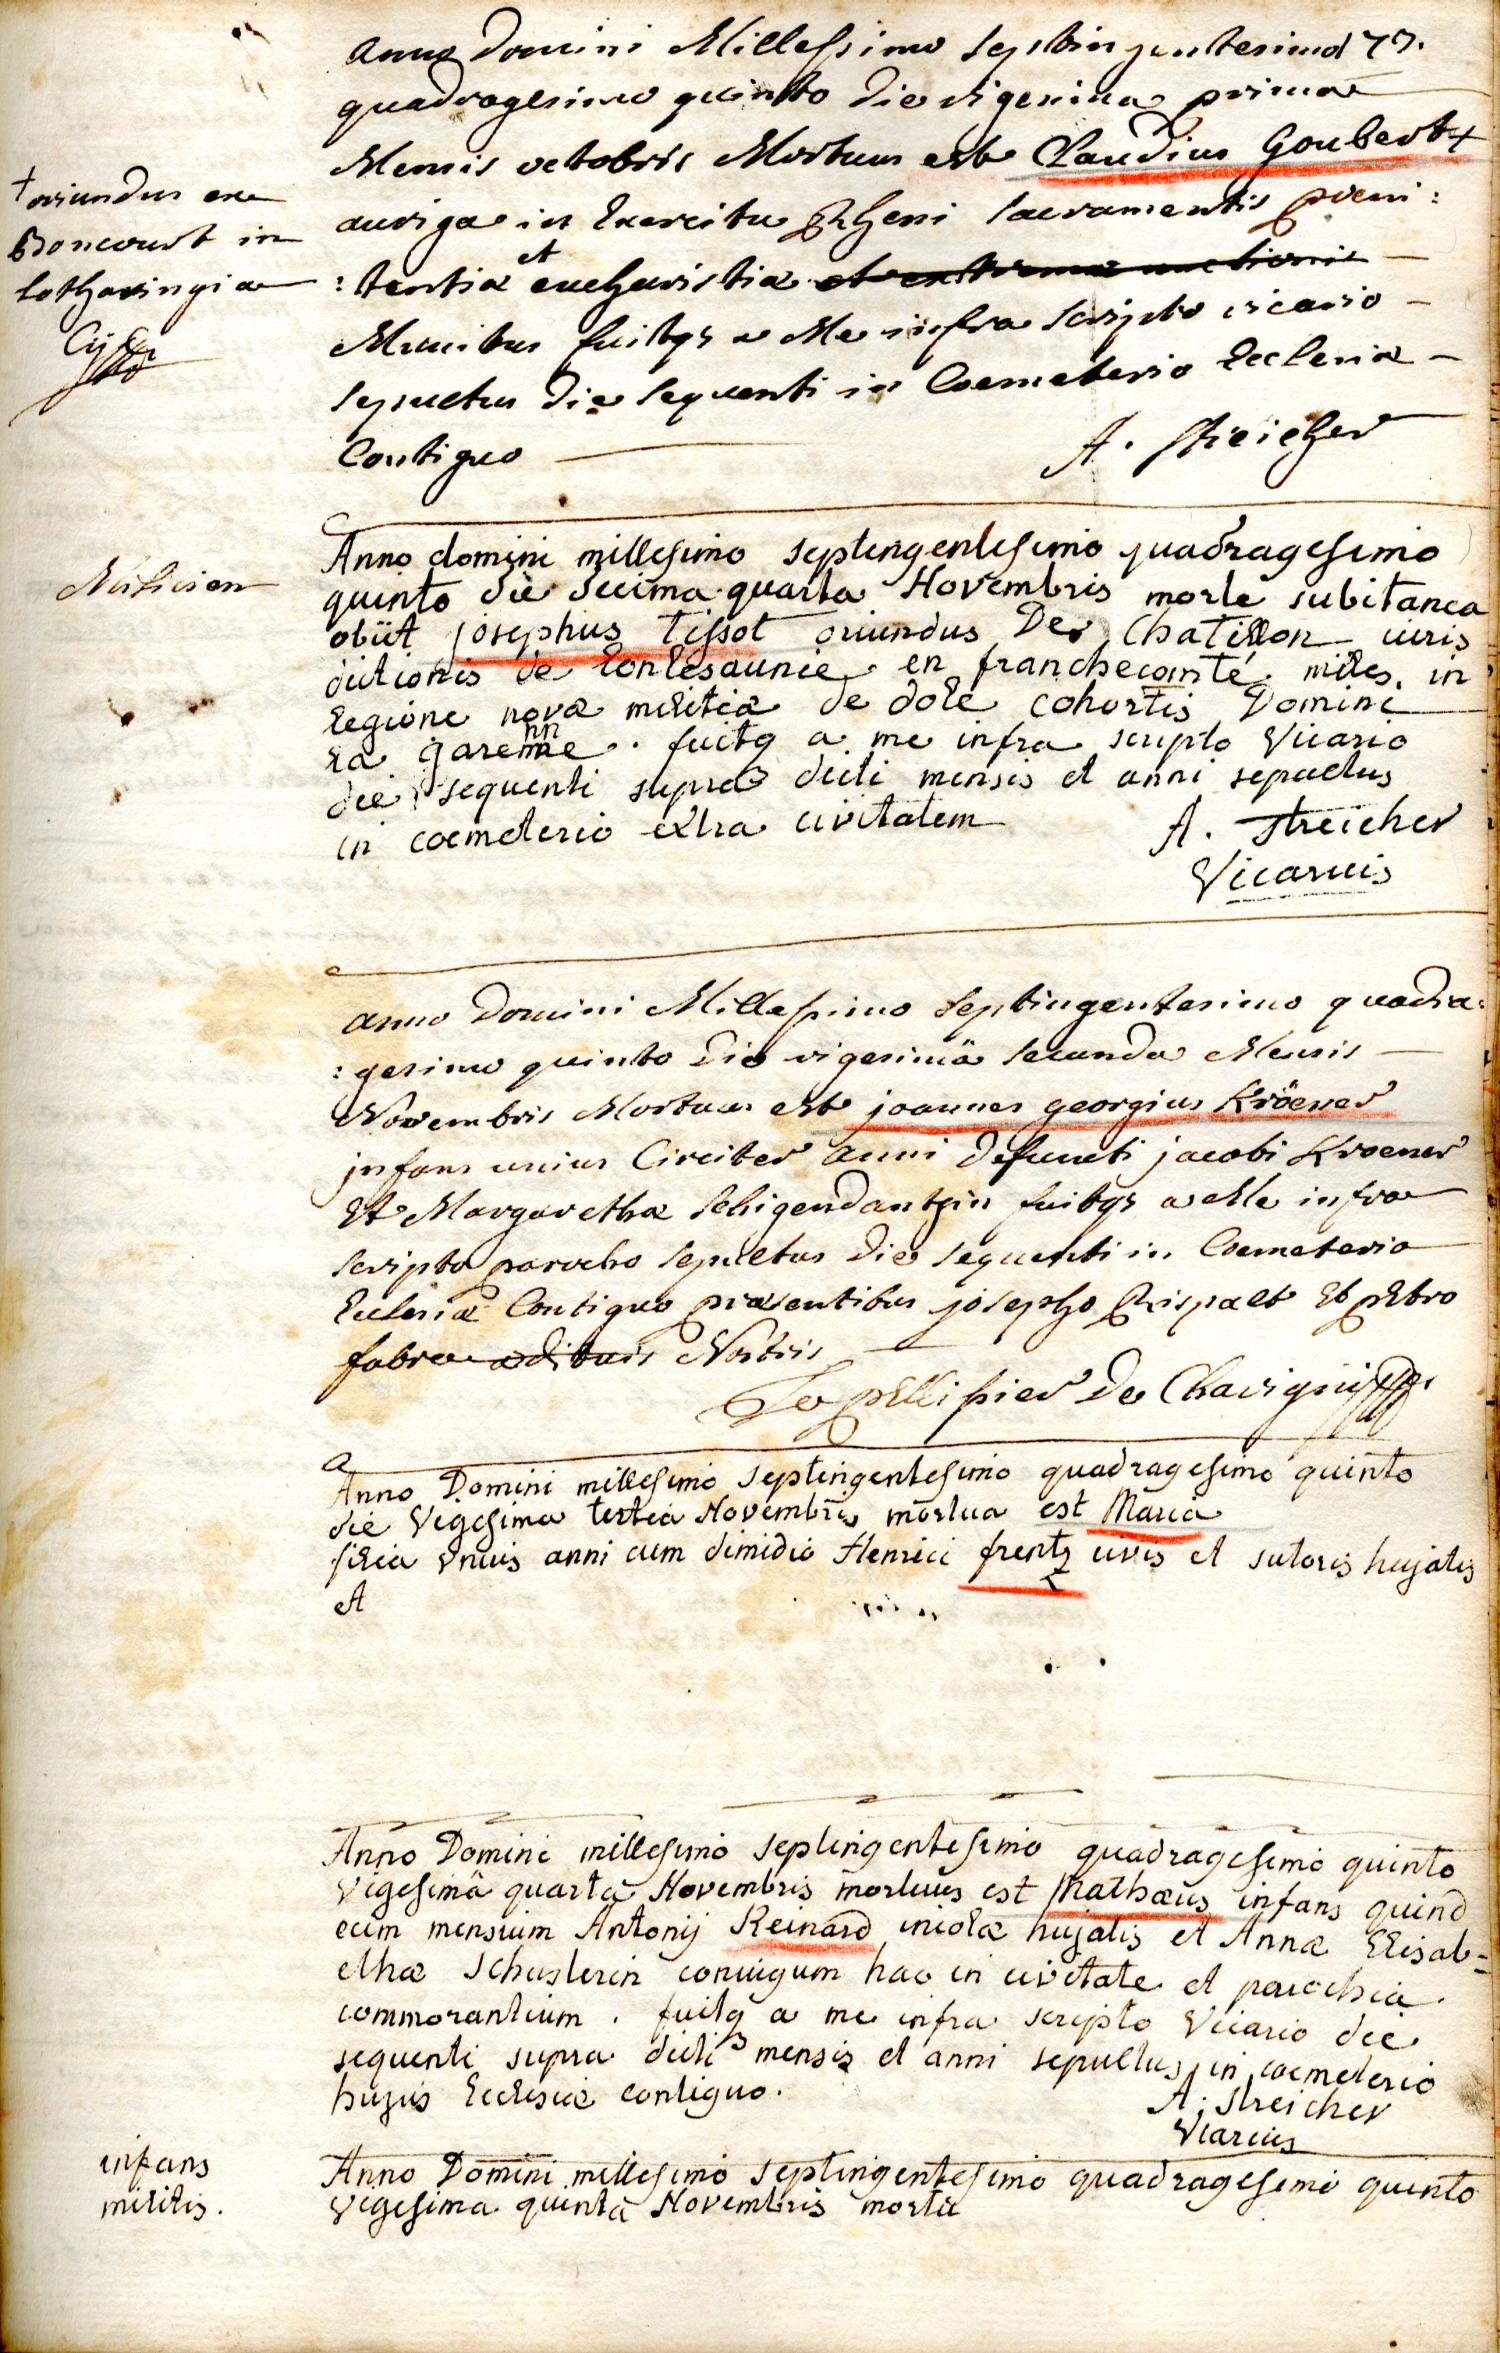 anno Domini Millessimo septingentesimo
quadragesimo quinto die vigesima prima
Mensis octobris Mortuus est Claudius Goubert +
+ oriundus ex
Boncourt in
lotharingia
auriga in Exercitu Rheni sacramentis poeni:
:tentiæ et eucharistiæ et extremæ unctionis
Munitus fuitqz a Me infra scripto vicario
sepultus die sequenti in Coemeterio Ecclesiæ
Contiguo
A. Streicher
Milicien
Anno domini millesimo septingentesimo quadragesimo
quinto die decima quarta Novembris morte subitanea
obiit josephus Tissot oriundus De Chatillon iuris
dictionis de Lonlesaunie en franchecomté miles in
legione novæ militiæ de dole cohortis Domini
la garenne . fuitq a me infra scripto Vicario
die sequenti supra dicti mensis et anni sepultus
in coemeterio extra civitatem
A. Streicher
Vicarius
anno Domini Millessimo Septingentesimo quadra:
:gesimo quinto die vigesimâ secunda Mensis
Novembris Mortuus est joannes georgius Kröener
infans unius Circiter anni defuncti jacobi Kroener
Et Margarethæ Schigendantzin fuitqz a Me infra
scripto parocho sepultus die sequenti in Coemeterio
Ecclesiæ Contiguo præsentibus josepho Rispalt Et pEtro
fabre ædituis Nostris
Le pEllissier De Chavigni
Anno Domini millesimo septingentesimo quadragesimo quinto
die Vigesima tertia Novembris mortua est Maria
filia unius anni cum dimidio Henrici frentz civis et sutoris hujatis
et
Anno Domini millesimo septingentesimo quadragesimo quinto
vigesimâ quarta Novembris mortuus est Mathæus infans quind
ecim mensium Antonij Reinard incolæ hujatis et Annæ Elisab=
ethæ Schusterin coniugum hac in civitate et parochia
commorantium . fuitq a me infra scripto Vicario die
sequenti supra dicti mensis et anni sepultus in coemeterio
hujus Ecclesiæ contiguo.
A. Streicher
Viarius
infans
militis.
Anno Domini millesimo septingentesimo quadragesimo quinto
Vigesima quinta Novembris mortu